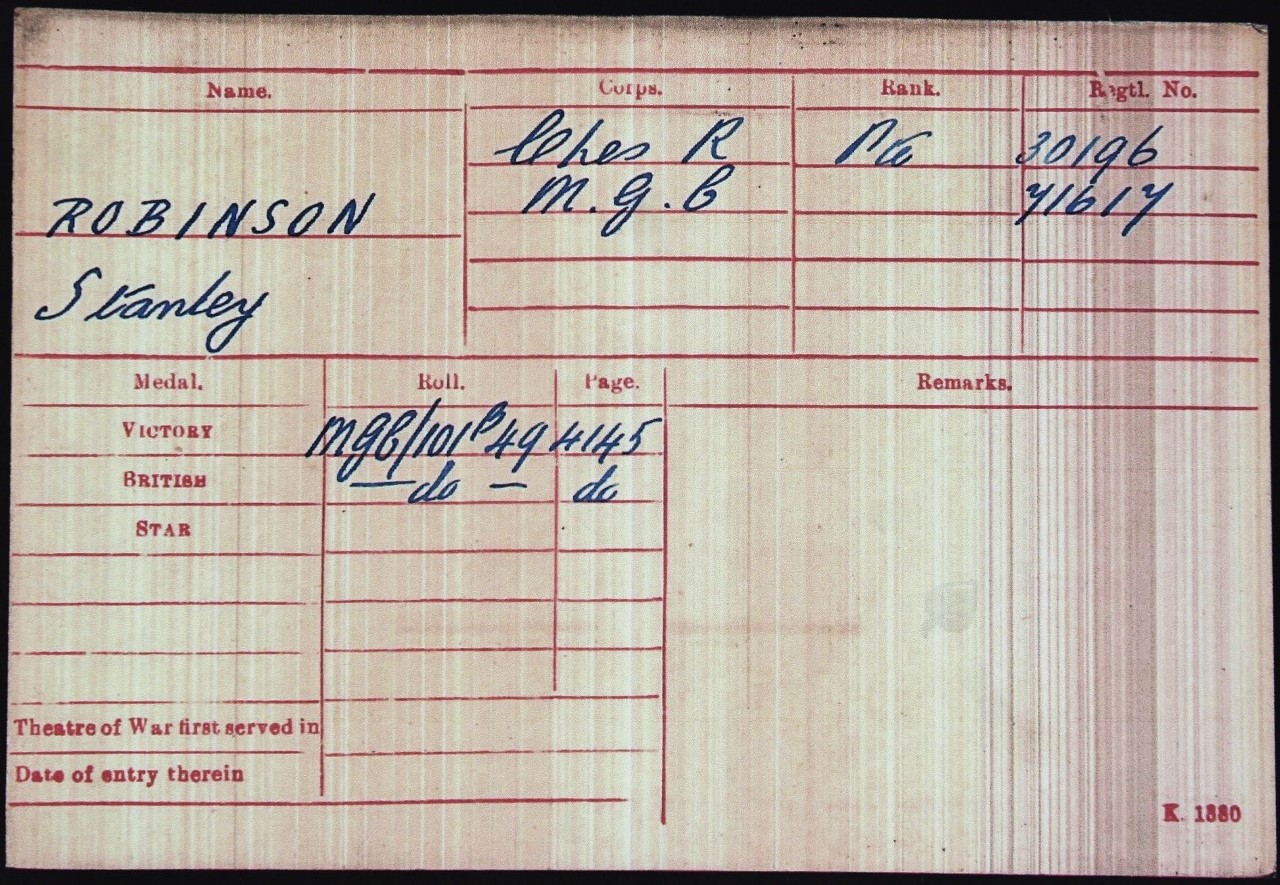 Name. Corps. Rank. Regtl. No.
Ches R Pte 30196
M.G.C 71617
ROBINSON
Stanley
Medal. Roll. Page. Remarks.
VICTORY MGC/101B49 4145
BRITISH — do — do
STAR
Theatre of War first served in
Date of entry therein
K. 1380